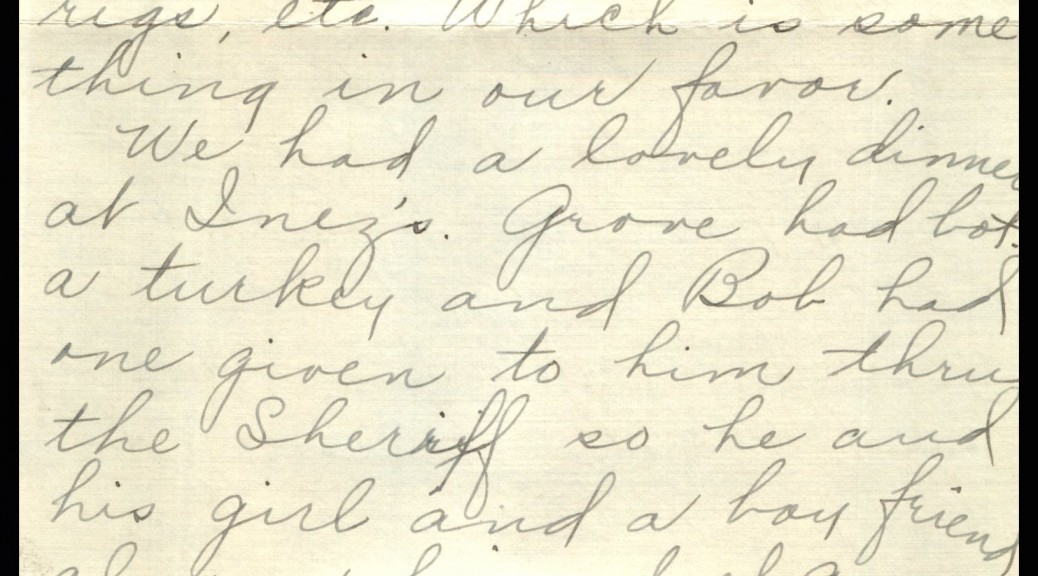 rigs, etc. Which is some
thing in our favor.
We had a lovely dinner
at Inez's. Grove had bot.
a turkey and Bob had
one given to him thru
the Sheriff so he and
his girl and a boy friend